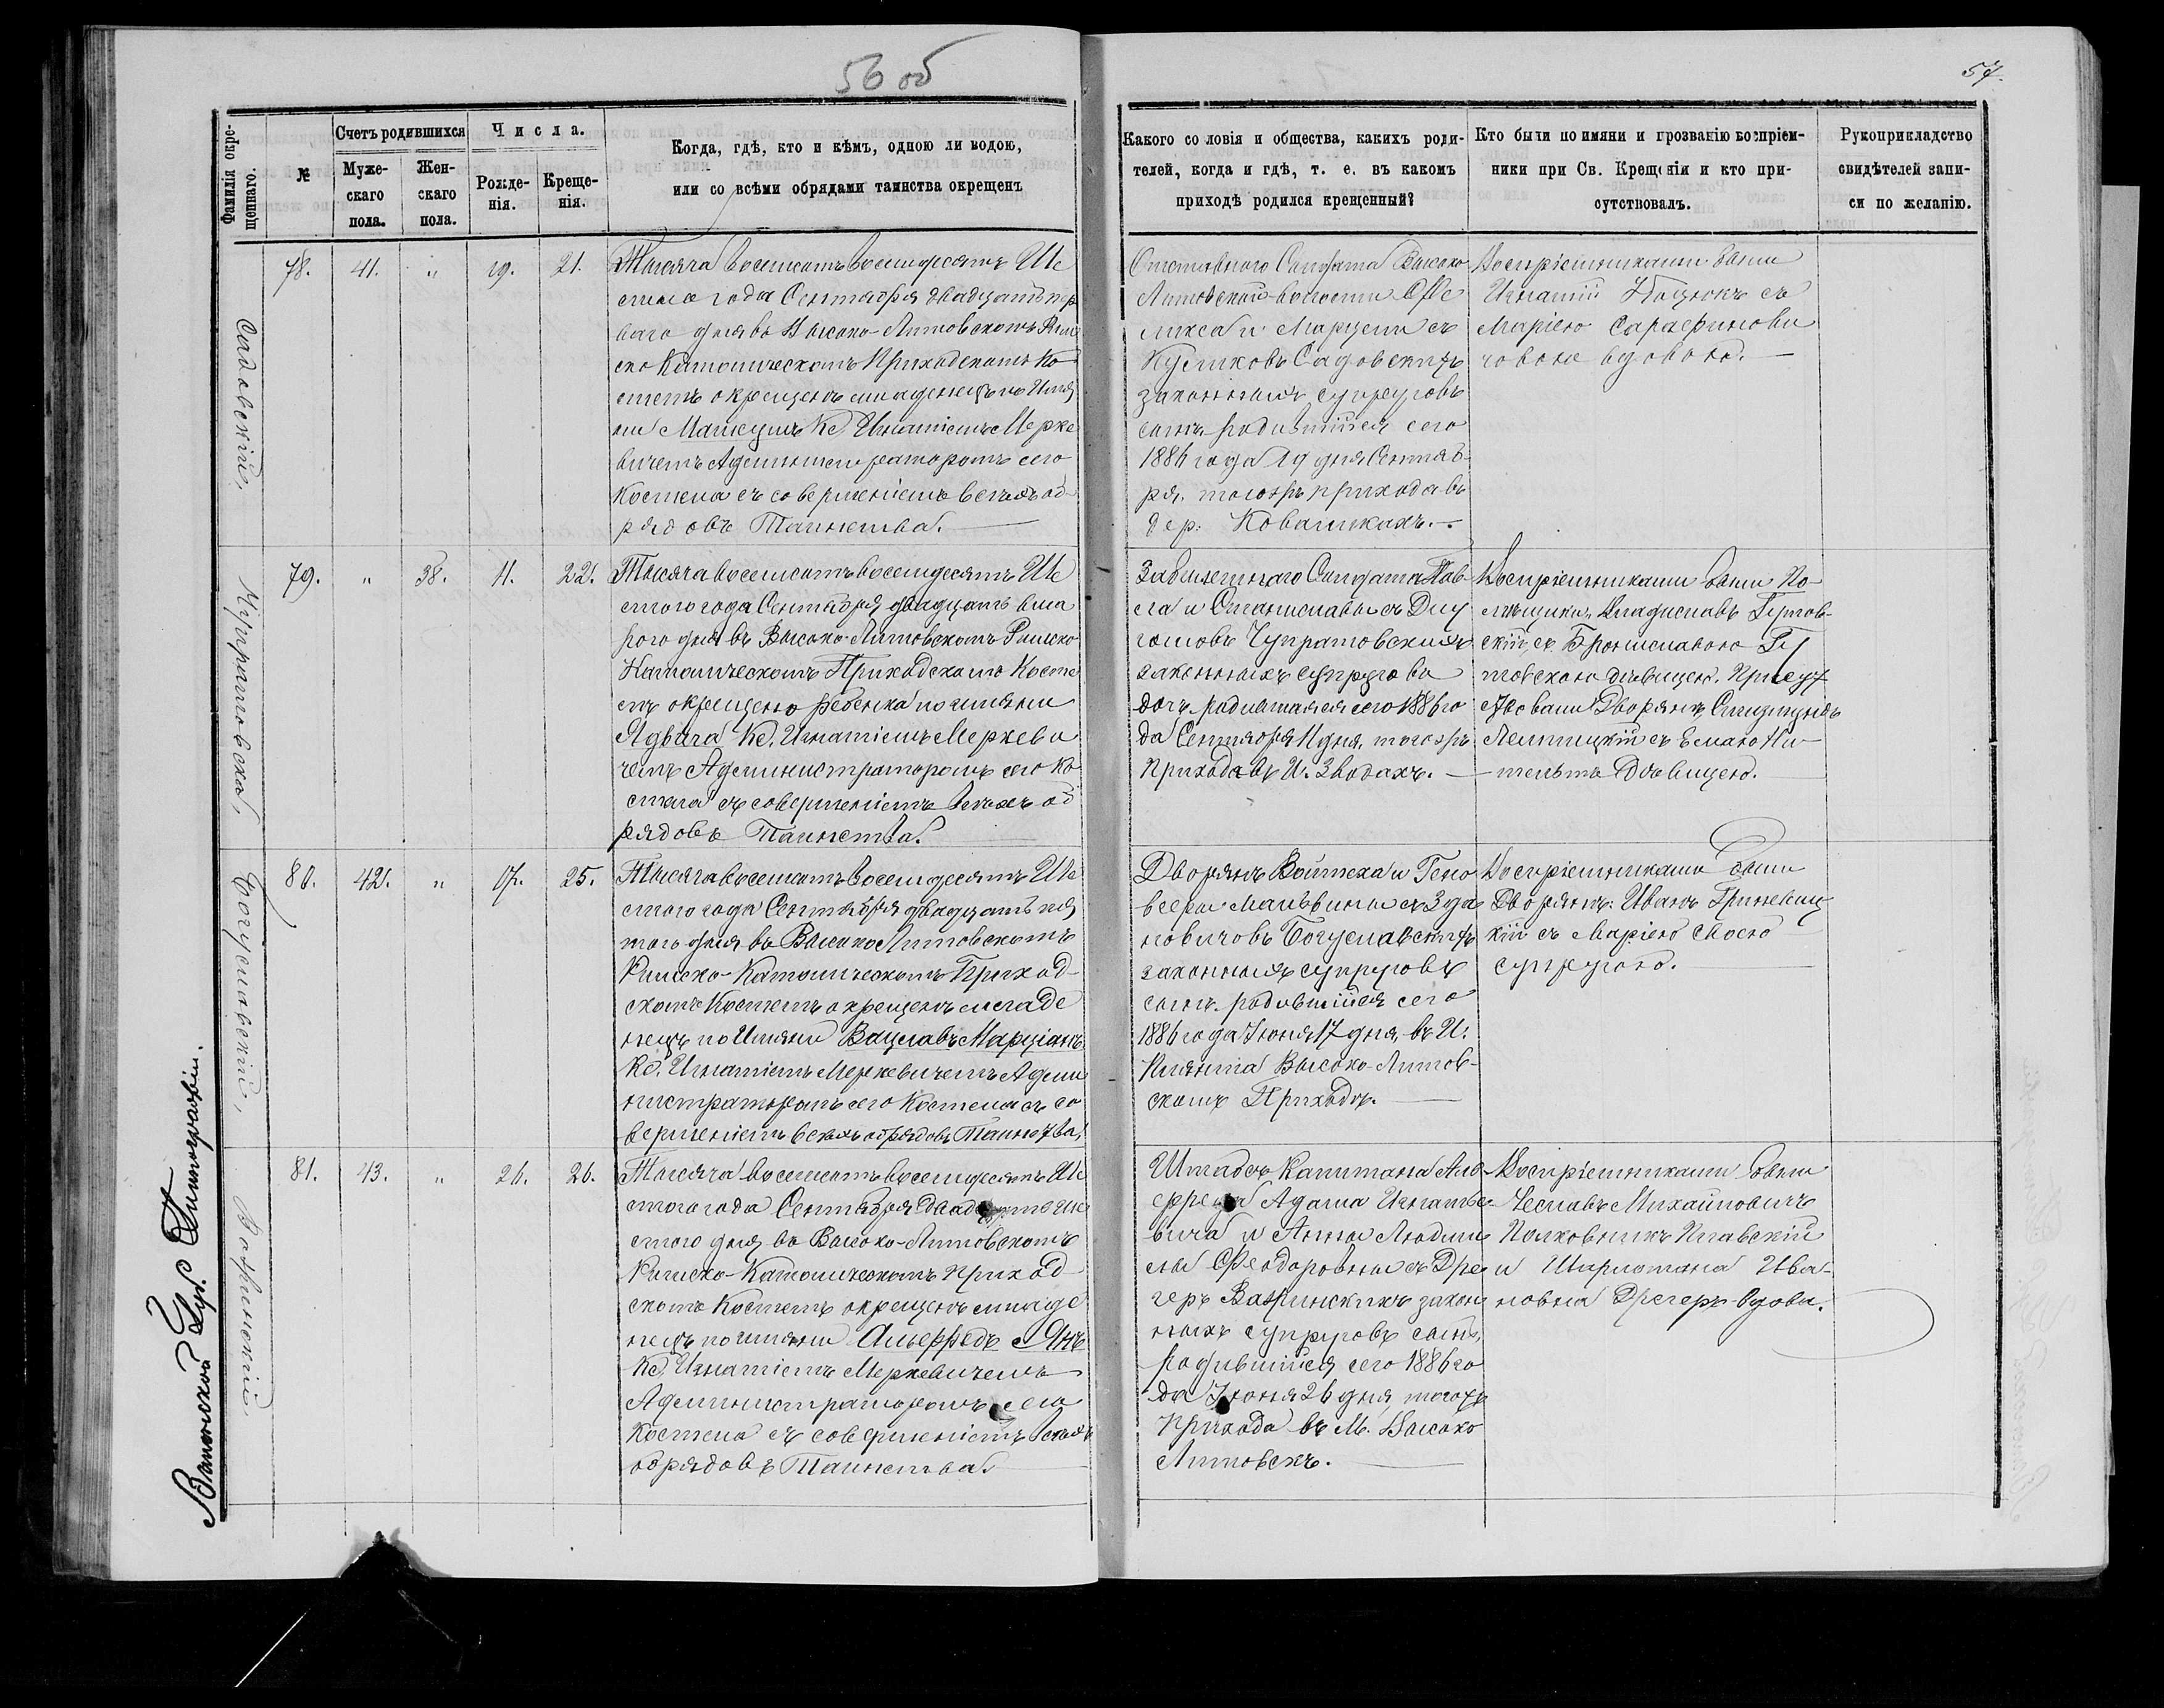 56 об
57.
Фамилія окре-
щеннаго.
№
Счетъ родившихся
Муже-
скаго
пола.
Жен-
скаго
пола.
Числа.
Рожде-
нія.
Креще-
нія.
Когда, гдѣ, кто и кѣмъ, одною ли водою,
или со всѣми обрядами таинства окрещенъ
Какого сословія и общества, какихъ роди-
телей, когда и гдѣ, т. е. въ какомъ
приходѣ родился крещенный?
Кто были по имяни и прозванію воспріем-
ники при Св. Крещеніи и кто при-
сутствовалъ.
Рукоприкладство
свидѣтелей запи-
си по желанію.
Садовскій,
78. 41. „ 19. 21.
Тысяча восемсотъ восемдесятъ Ше
стого года Сентября двадцать пер
ваго дня въ Высоко-Литовскомъ Рим
ско Католическомъ Приходскомъ Ко
стелѣ окрещенъ младенецъ по Имя
ни Кс. Игнатіемъ Мерке
вичемъ Администраторомъ сего
Костела съ совершеніемъ всѣхъ об
рядовъ Таинства.
Отставного Солдата Высоко
Литовской волости Фе
ликса и Марцели съ
Садовскихъ
законныхъ супруговъ
сынъ, родившійся сего
1886 года 19 дня Сентяб-
ря. тогожъ прихода въ
дер.
Воспріемниками были
Игнатій съ
Маріею Сарафинови
човою вдовою.
Чупратовска,
79. „ 38. 11. 22.
Тысяча восемсотъ восемдесятъ Ше
стого года Сентября двадцать вто
рого дня въ Высоко-Литовскомъ Римско
Католическомъ Приходскомъ Косте
лѣ окрещено ребенка по имяни
Ядвига Кс. Игнатіемъ Меркеви
чемъ Администраторомъ сего Ко
стела съ совершеніемъ всѣхъ об
рядовъ Таинства.
Солдата Пав-
ла и Станиславы съ
Чупратовскихъ
законныхъ супругова
дочь, родившаяся сего 1886 го
да Сентября 11 дня, тогожъ
Прихода въ И. Зводахъ.
Воспріемниками были По-
мѣщики, Владиславъ Гутов-
скій, съ Брониславою Гу
товскою дѣвицею. Присут
ствовали Дворянъ, Сигизмундъ
съ
Дѣвицею.
Богуславскій,
80. 42. „ 17. 25.
Тысяча восемсотъ восемдесятъ Ше
стого года Сентября двадцать пя
того дня въ Высоко Литовскомъ
Римско-Католическомъ Приход-
скомъ Костелѣ окрещенъ младе
нецъ по Имяни Вацлавъ Марціанъ
Кс. Игнатіемъ Меркевичемъ Адми
нистраторомъ сего Костела съ со
вершеніемъ всѣхъ обрядовъ Таинства.
Дворянъ Войтеха и Гено
вефы Мальвины съ Зда
новичовъ Богуславскихъ
законныхъ супруговъ
сынъ, родившійся сего
1886 года Іюня 17 дня, въ И.
Высоко-Литов-
скомъ Приходѣ.
Воспріемниками были
Дворянъ: Иванъ Гриневиц
кій съ Маріею своею
супругою.
81. 43. „ 26. 26.
Тысяча восемсотъ восемдесятъ Ше
стого года Сентября двадцать Ше
стого дня въ Высоко-Литовскомъ
Римско-Католическомъ Приход-
скомъ Костелѣ окрещенъ младе
нецъ по имяни Альфредъ Янъ
Кс. Игнатіемъ Меркевичемъ
Администраторомъ сего
Костела съ совершеніемъ всѣхъ
обрядовъ Таинства.
Штабсъ Капитана Аль-
фреда Адама Игнатье-
вича и Анны Людви
Феодоровны съ Дре
геръ закон
ныхъ супруговъ сынъ,
родившійся сего 1886 го
да Іюня 26 дня, тогожъ
прихода въ М. Высоко
Литовскъ.
Воспріемниками были
Чеславъ Михайловичъ
Полковникъ
и Шарлотана Ива-
новна Дрегеръ вдова.
Виленской Губ. Типографіи.